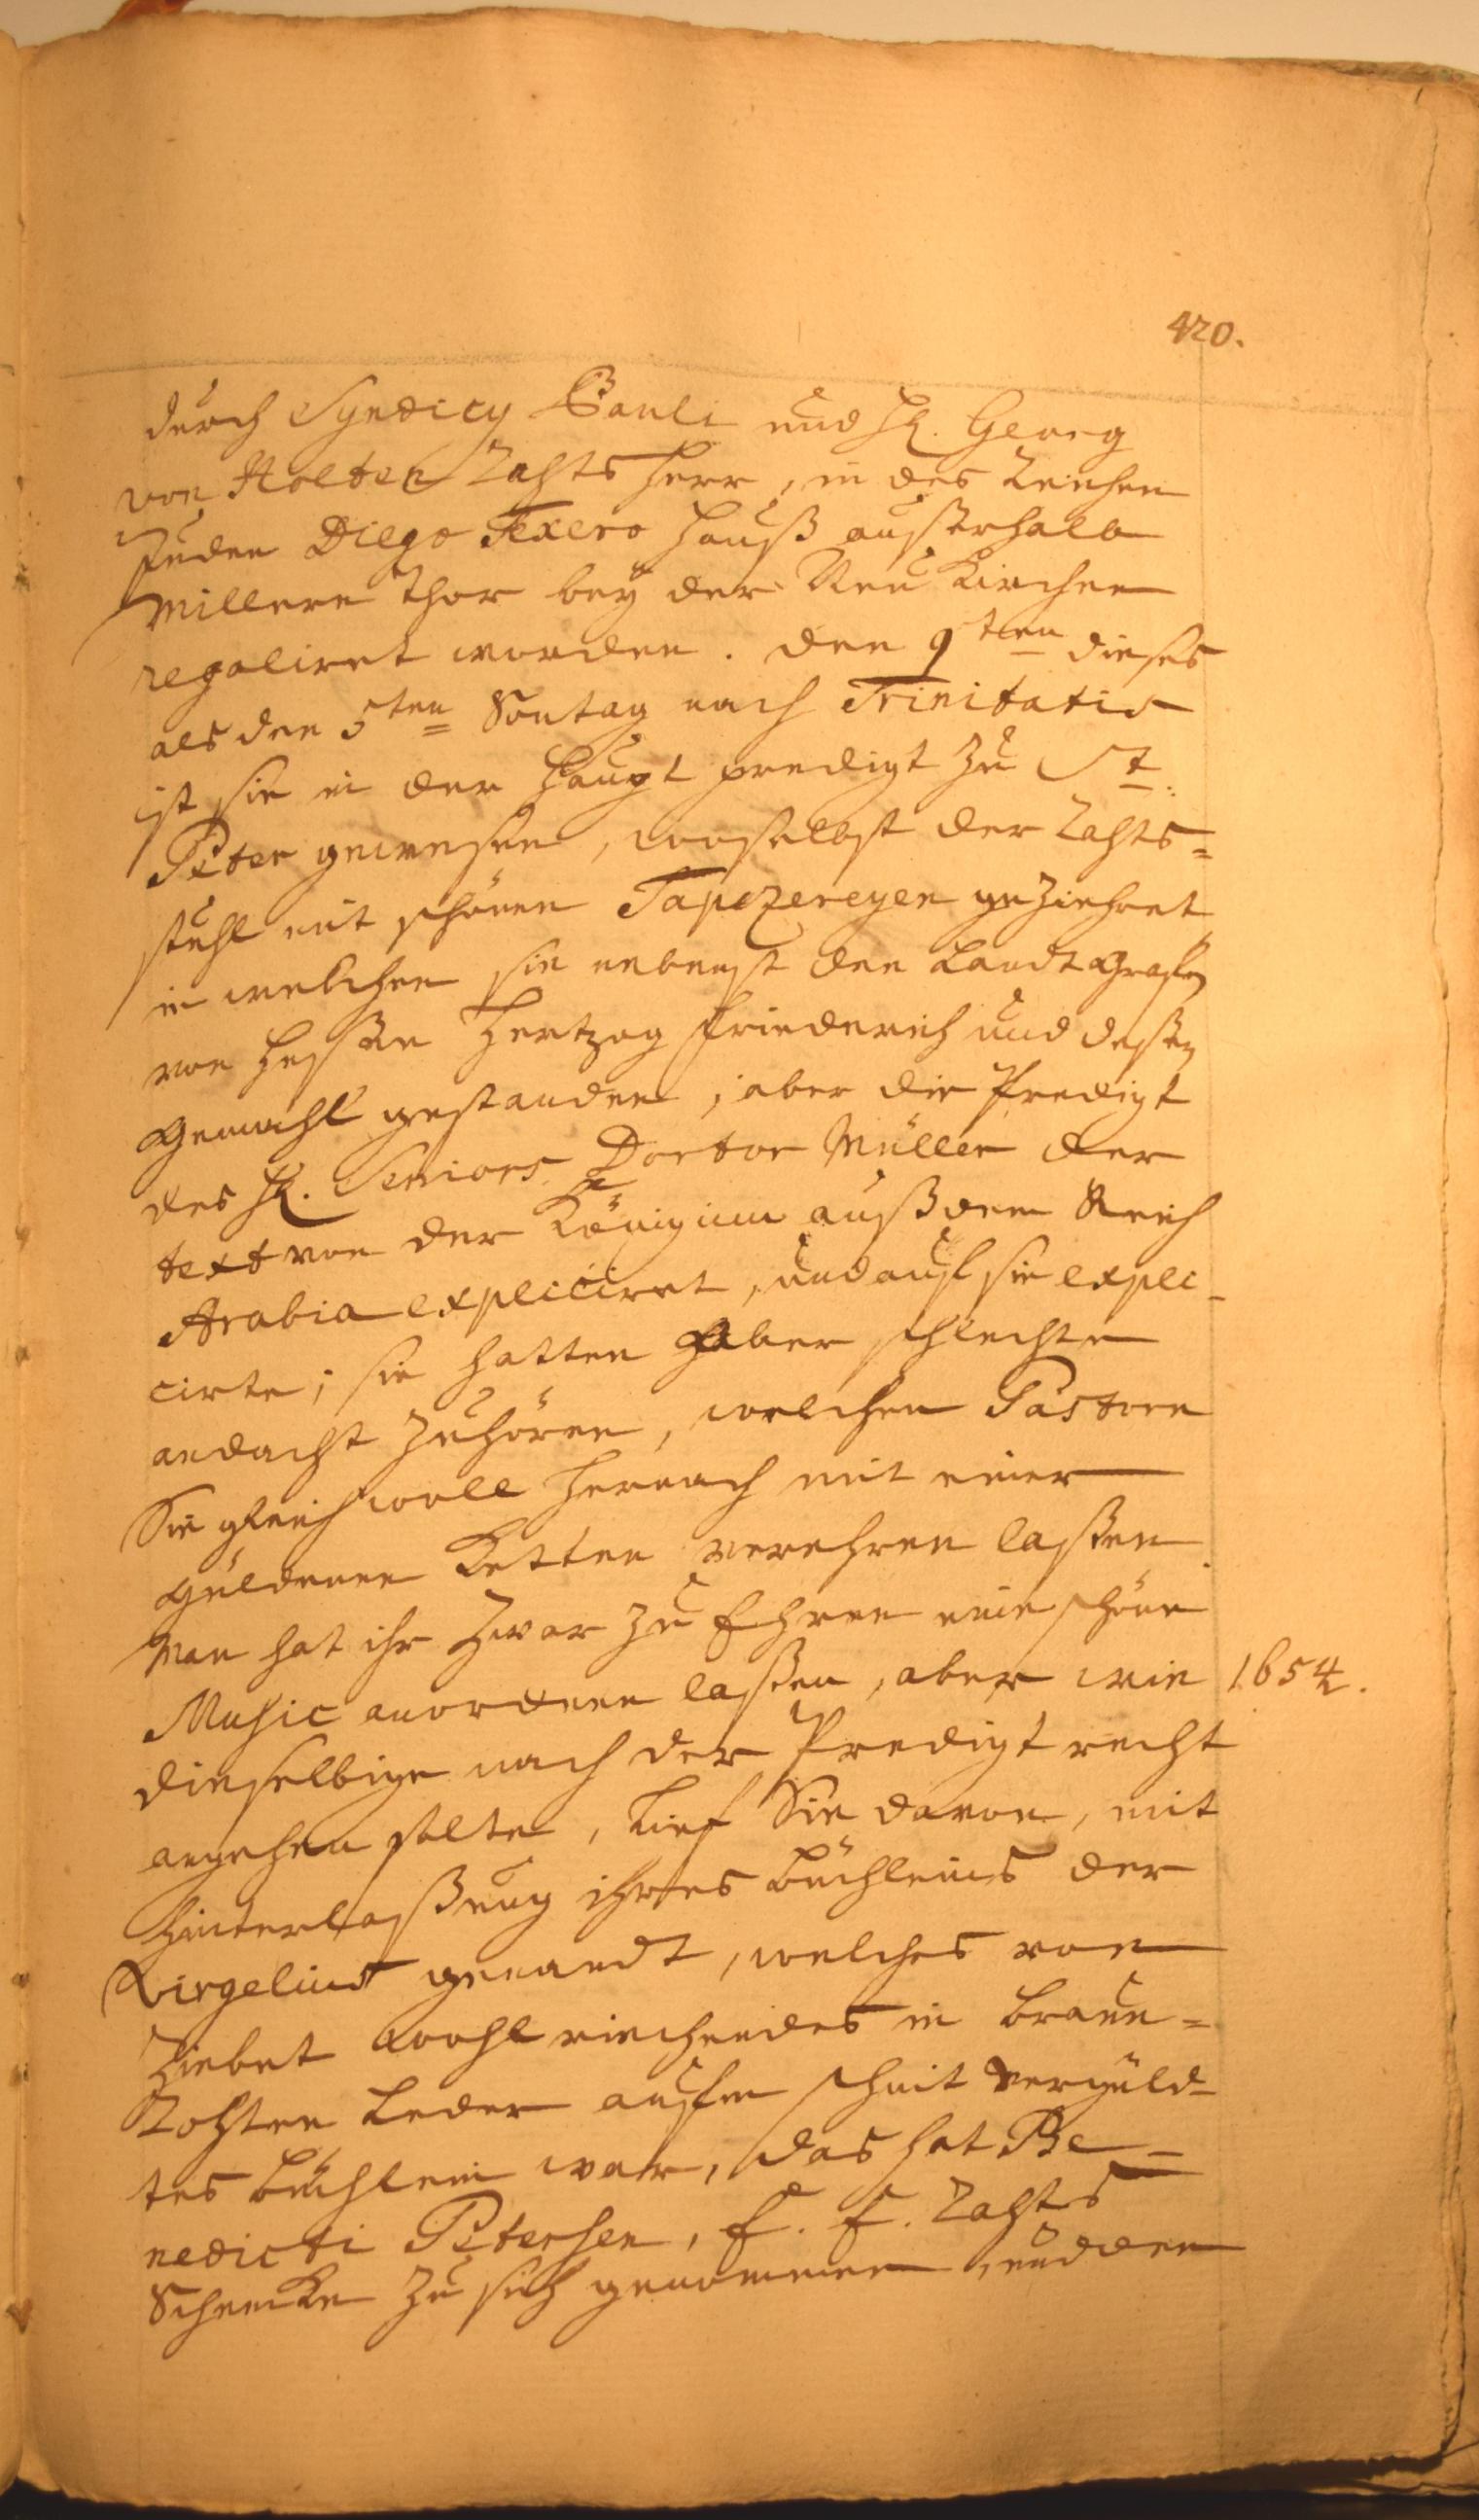 420.
durch Syndicy Pauli und H. Georg
von Holten Rahts Herr, in des Reichen
Juden Diego Texero Hauß außerhalb
Millern Thor bey der Neu Kirchen
regaliret worden. Den 9ten dieses
als den 5ten Sontag nach Trinitatis
ist sie in der Haupt predigt zu St.
Peter gewesen, woselbst der Rahts=
stuhl mit schönen Tapezereyen geziehret
in welchen sie nebenst den Landt Grafen
von Hessen Hertzog Friederich und dessen
Gemahl gestanden, aber die Predigt
des H. Seniors Doctor Müller der
text von der Königinn auß dem Reich
Arabia expliciret, und auf sie expli-
cirte; sie hatten aber schlechte
andacht zuhören, welchen Pastorn
Sie gleichwoll hernach mit einer
güldenen Ketten verehren lassen.
Man hat ihr zwar zu Ehren eine schöne
Music anordnen lassen, aber wie
1654.
dieselbige nach der Predigt recht
angehen solte, lief Sie davon, mit
Hinterlaßung ihres Büchleins der
Virgelius genandt, welches von
Ziebet wohl riechendes in braun=
Rohten Leder aufm schnit vergüld-
tes Büchlein war, das hat Be-
nedicti Petersen, E. E. Rahts
Schencke zu sich genommen, und den